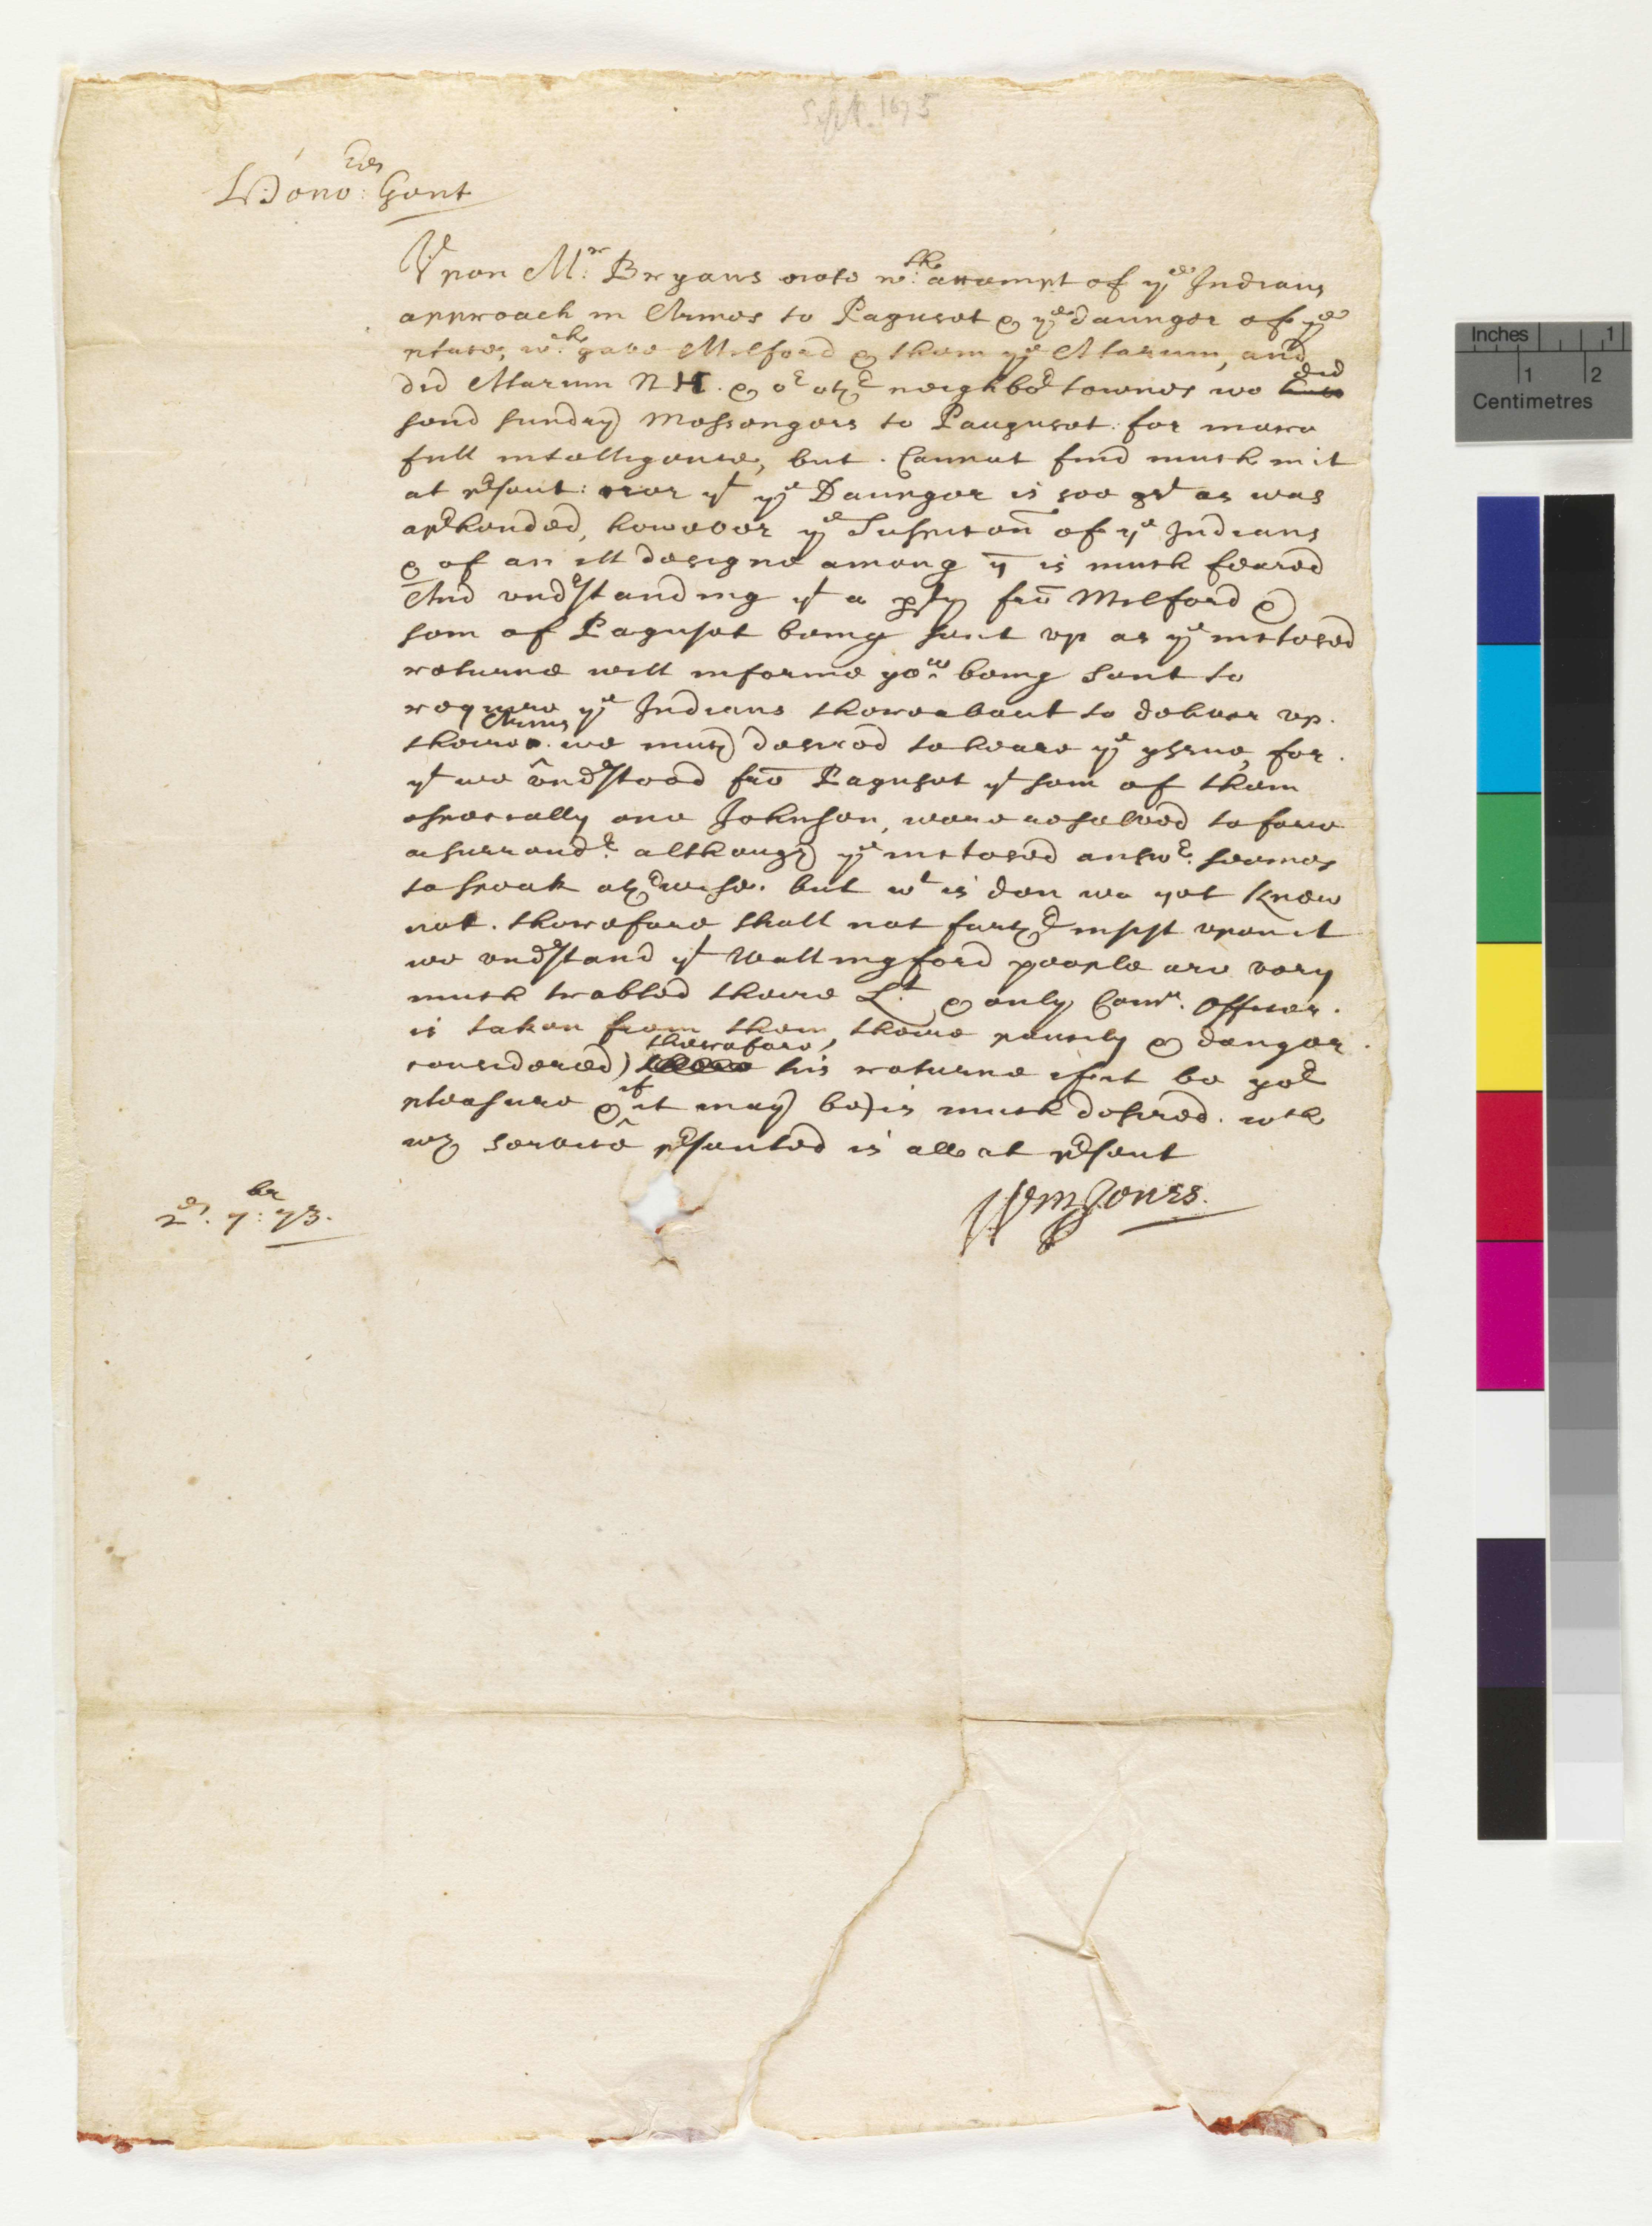 Sept. 1675
Hono:rd Gent
Vpon Mr: Bryans note wth: attempt of ye Indians
approach in Armes to Paguset & ye daunger of ye
place, wch: gave Milford & them ye Alarum, and
did Alarum N H. & or othr neighbor townes we did
send sundry Messengers to Pauguset for more
full intelligence, but Cannot find much in it
at prsent: nor yt ye Daunger is soe grt as was
aprhended, however ye Suspition of ye Indians
& of an ill designe among ym is much feared
And vndrstanding yt a prty fro Milford &
som of Paguset being sent vp as ye inclosed
returne will informe yow being sent to
require ye Indians thereabout to deliver vp
theire Armes we much desired to heare ye yssue, for
yt we vndrstood fro Paguset yt som of them
especially one Johnson, were resolved to force
a surrendr: although ye inclosed answr: seemes
to speak othrwise. but wt is don we yet know
not. therefore shall not furthr insist vpon it
we vndrstand yt Wallingford people are very
much trobled theire Lt & only Comr. Officer
is taken from them, theire paucity & danger
considered) therefore, his returne if it be yor
pleasure & if it may be) is much desired. wch
wth service prsented is all at prsent
Wm Jones.
2d. 7br: 75.
Inches 1
1 2
Centimetres